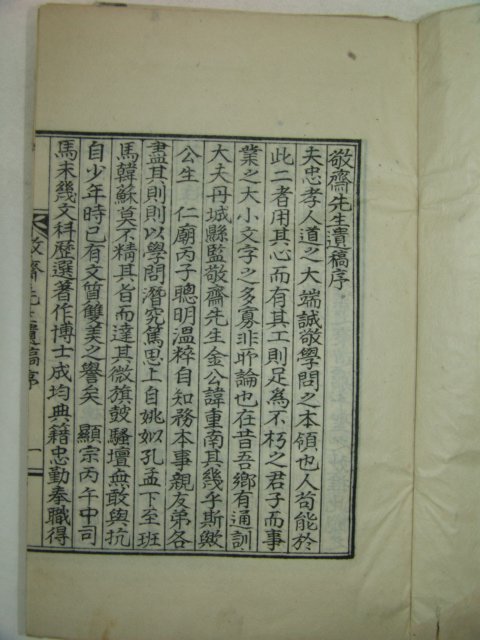 敬齋先生遺稿序
夫忠孝人道之大端誠敬學問之本領也人苟能於
此二者用其心而有其工則足為不朽之君子而事
業之大小文字之多寡非所論也在昔吾鄉有通訓
大夫丹城縣監敬齋先生金公諱重南其幾乎斯歟
公生 仁廟丙子聰明溫粹自知務本事親友弟各
盡其則則以學問潛究篤思上自姚姒孔孟下至班
馬韓蘇莫不精其旨而達其微旗鼓騷壇無敢與抗
自少年時已有文質雙美之譽矣 顯宗丙午中司
馬未幾文科歷選著作博士成均典籍忠勤奉職得
敬齋先生遺稿序 一